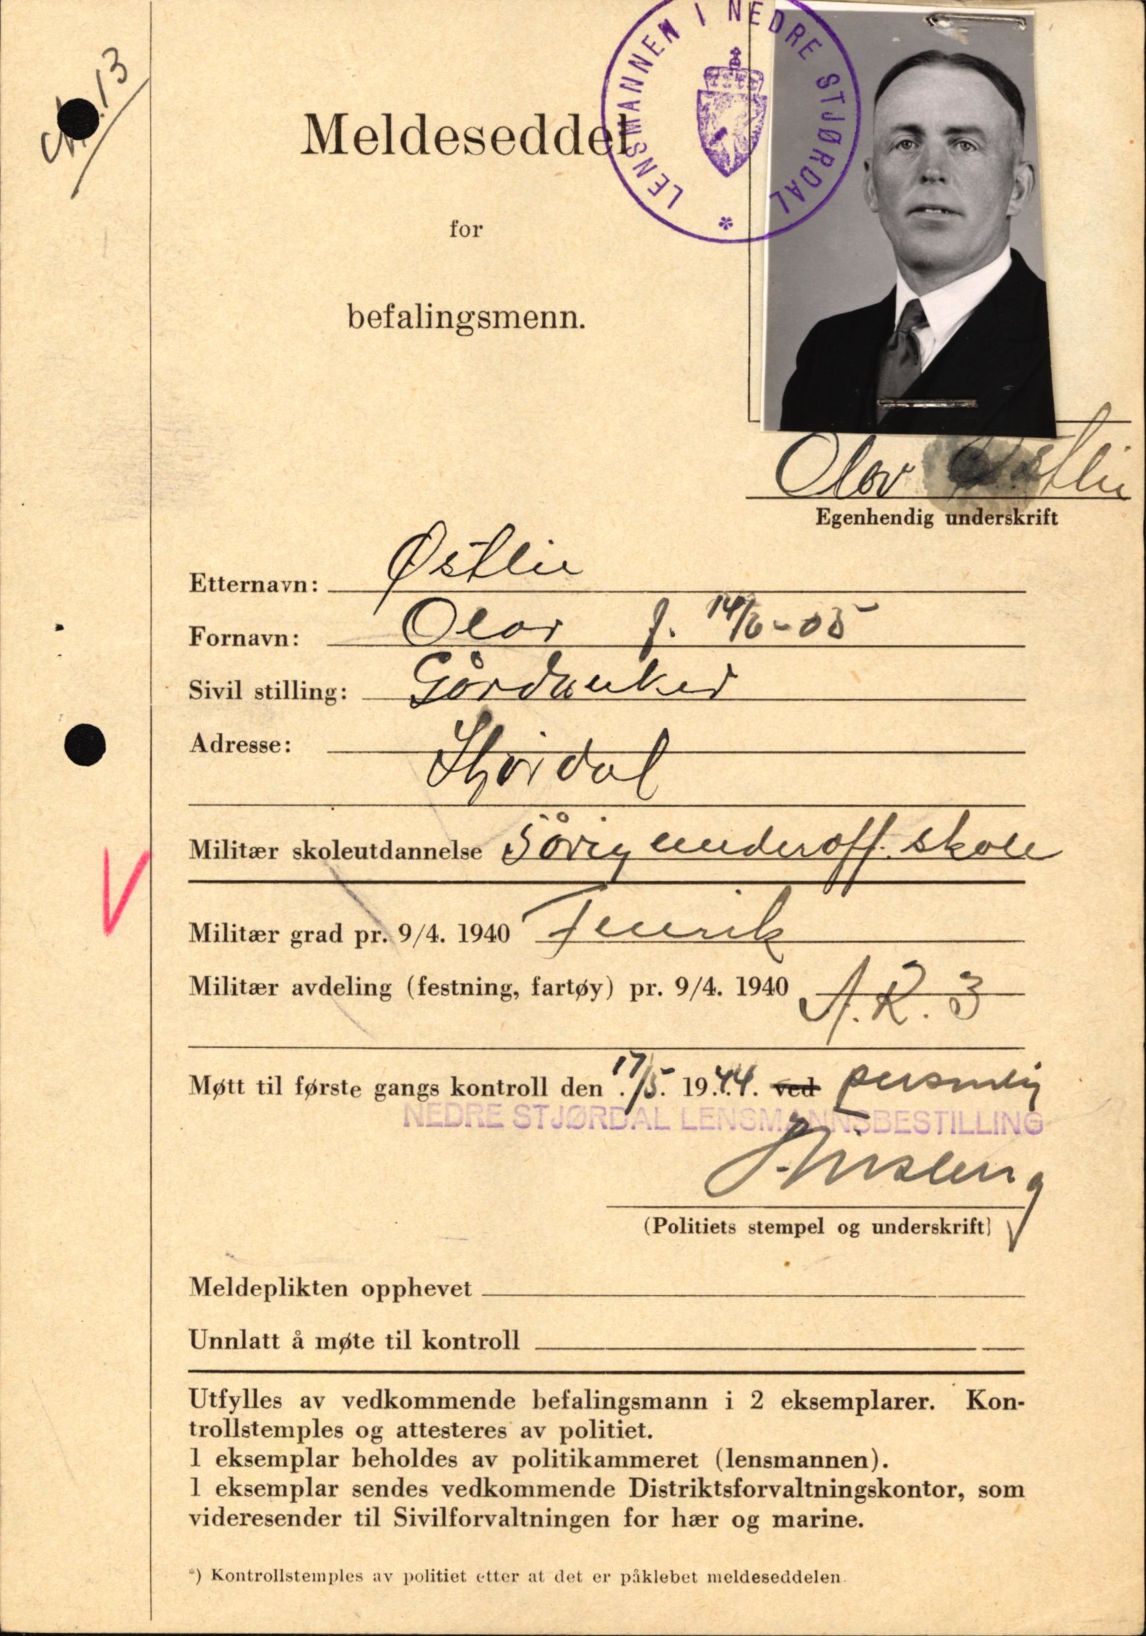 13
LENSMANNEN I NEDRE STJØRDAL *
Meldeseddel
for
befalingsmenn.
Olav Østlie
Egenhendig underskrift
Etternavn: Østlie
Fornavn: Olav f. 14/6-05
Sivil stilling: Gårdbruker
Adresse:
Stjørdal
Militær skoleutdannelse 3årig underoff. skole
Militær grad pr. 9/4. 1940 Fenrik
Militær avdeling (festning, fartøy) pr. 9/4. 1940 A.R. 3
Møtt til første gangs kontroll den 17/5. 1944. ved personlig
NEDRE STJØRDAL LENSMANNSBESTILLING
(Politiets stempel og underskrift)
Meldeplikten opphevet
Unnlatt å møte til kontroll
Utfylles av vedkommende befalingsmann i 2 eksemplarer. Kon-
trollstemples og attesteres av politiet.
1 eksemplar beholdes av politikammeret (lensmannen).
1 eksemplar sendes vedkommende Distriktsforvaltningskontor, som
videresender til Sivilforvaltningen for hær og marine.
*) Kontrollstemples av politiet etter at det er påklebet meldeseddelen.